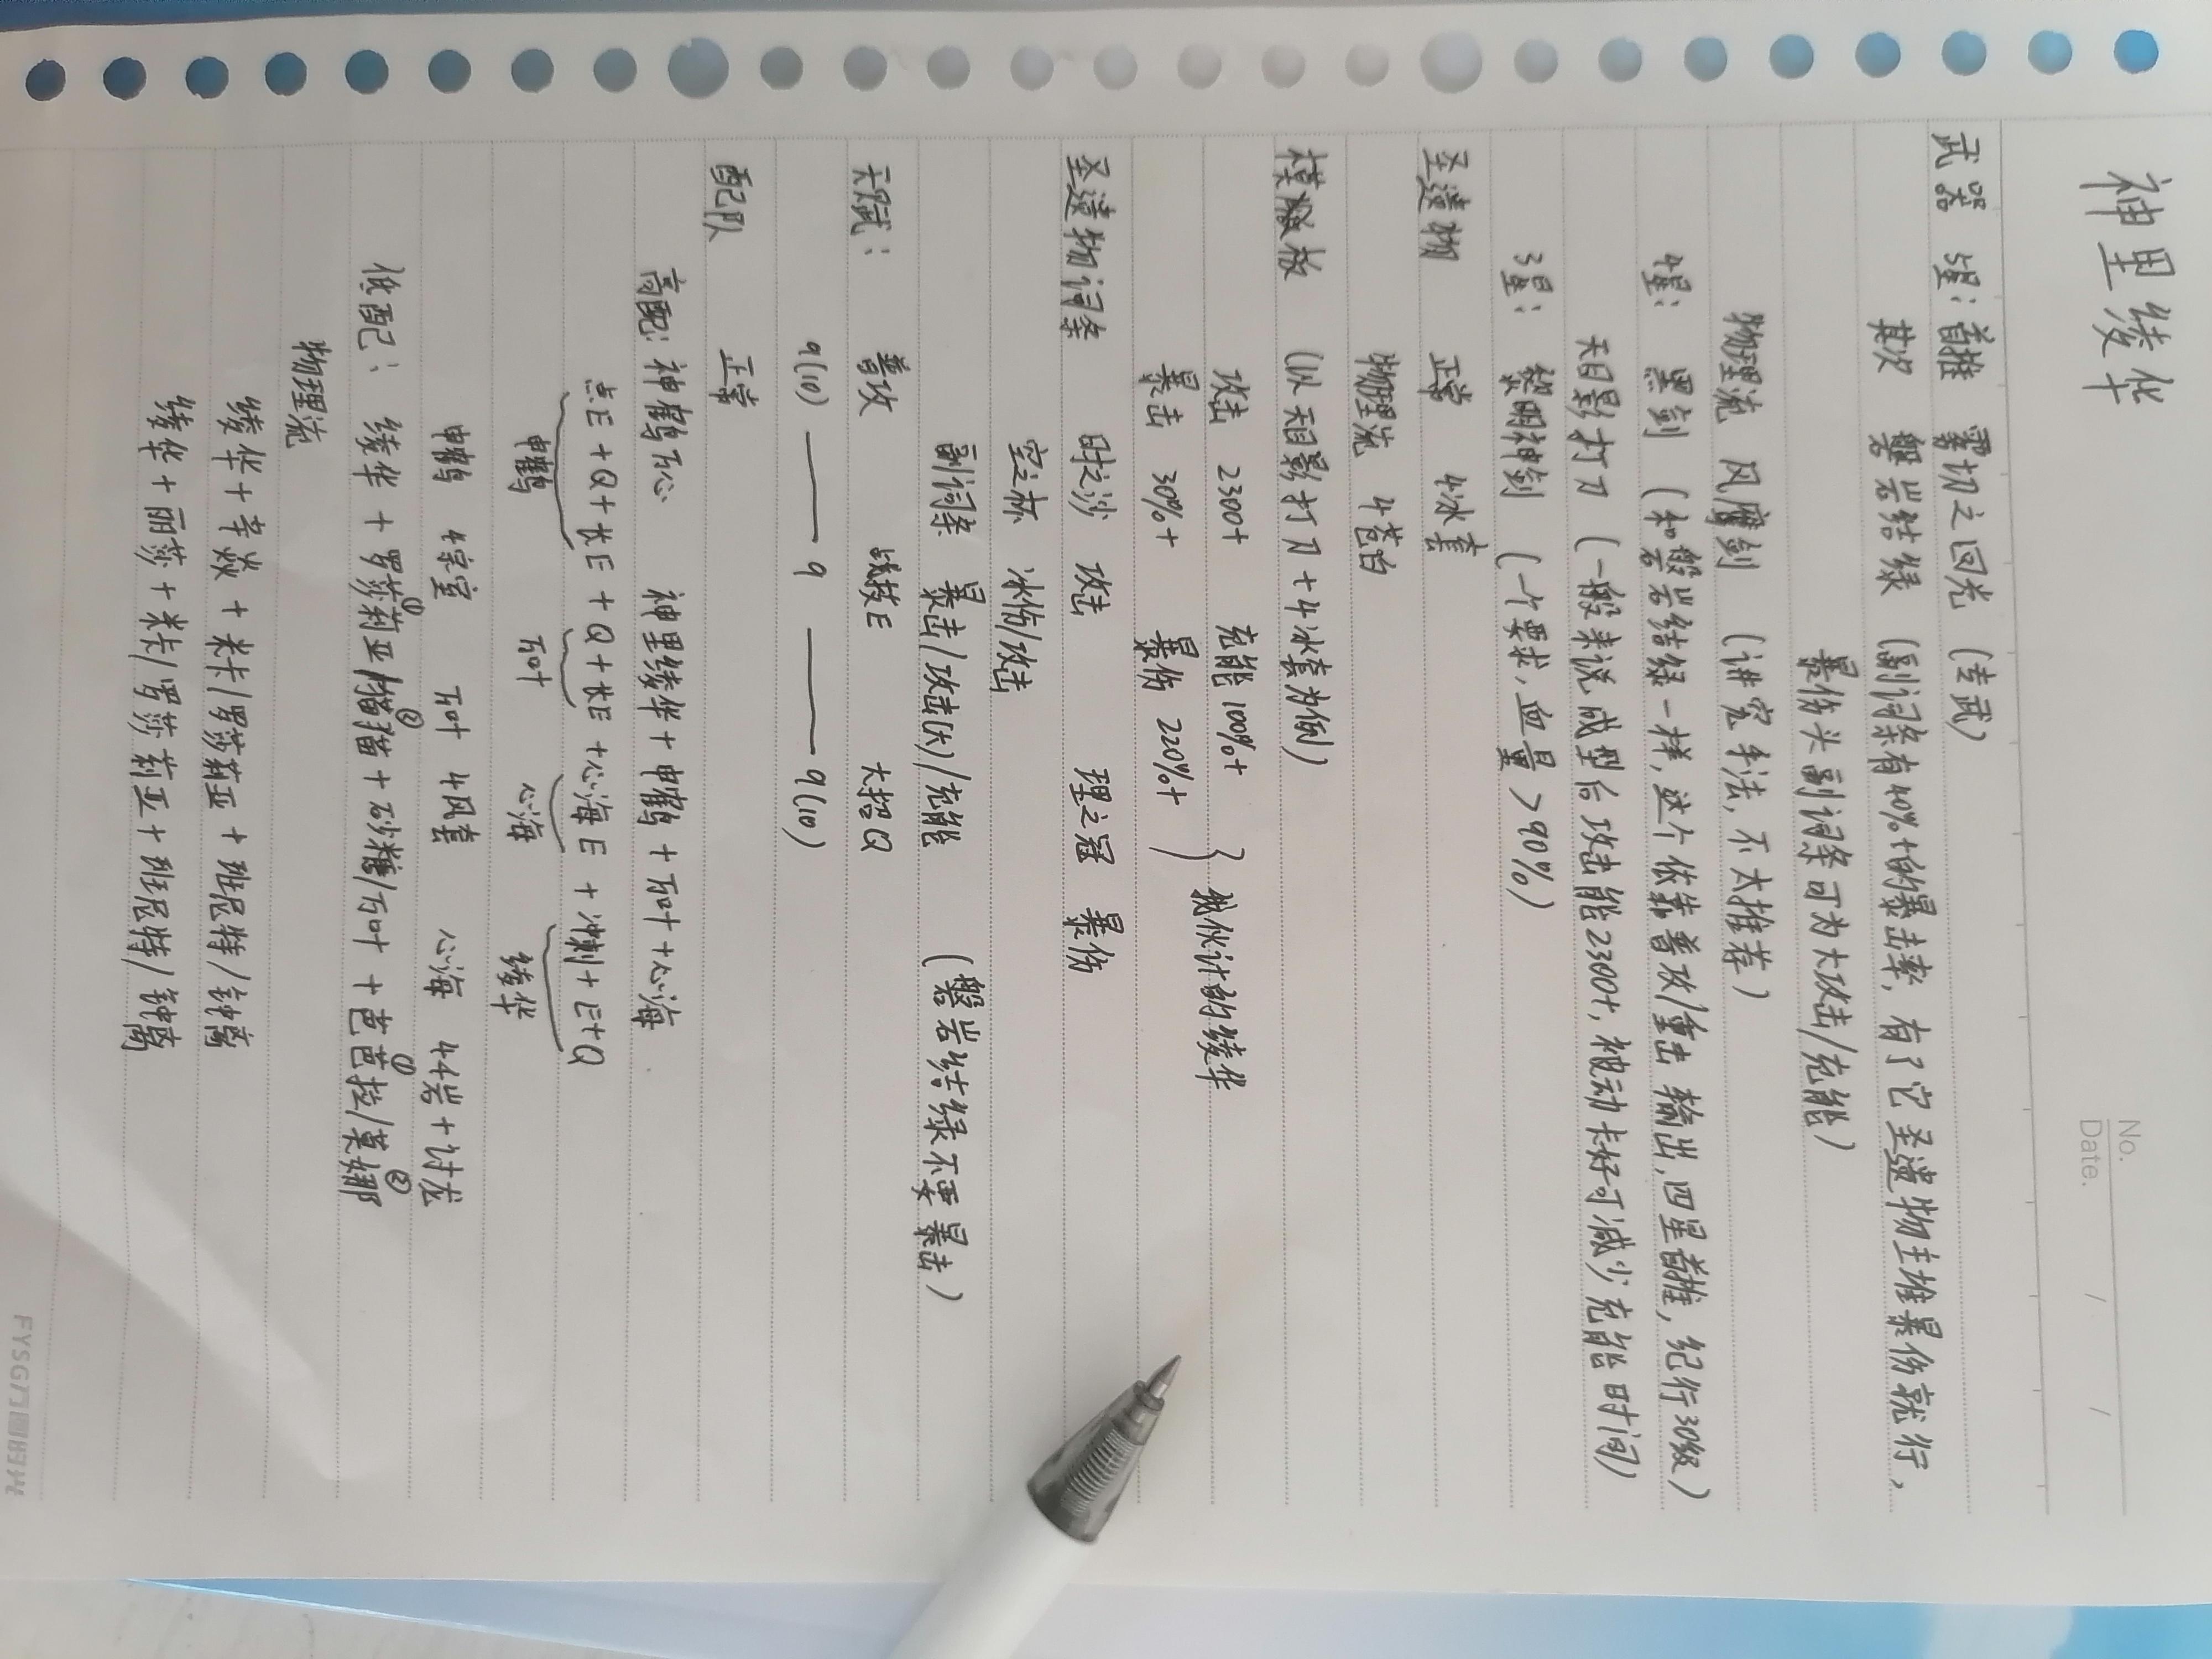 No.
Date. / /
神里绫华
武器 5星：首推 雾切之回光 （专武）
其次 磐岩结绿 （副词条有40%+的暴击率，有了它圣遗物主堆暴伤就行，
暴伤头副词条可为大攻击/充能）
物理流 风鹰剑 （讲究手法，不太推荐）
4星： 黑剑 （和磐岩结绿一样，这个依靠普攻/重击 输出，四星首推，纪行30级）
天目影打刀 （一般来说成型后攻击能2300+，被动卡好可减少充能时间）
3星： 黎明神剑 （一个要求，血量>90%）
圣遗物 正常 4冰套
物理流 4苍白
模板 （以天目影打刀+4冰套为例）
攻击 2300+ 充能100%+
暴击 30%+ 暴伤 220%+ } 我伙计的绫华
圣遗物词条 时之沙 攻击 理之冠 暴伤
空之杯 冰伤/攻击
副词条 暴击/攻击(大)/充能 （磐岩结绿不要暴击）
天赋： 普攻 战技E 大招Q
9(10) —— 9 —— 9(10)
配队 正常
高配：神鹤万心 神里绫华+申鹤+万叶+心海
点E+Q+长E+Q+长E+心海E+冲刺+E+Q
申鹤 万叶 心海 绫华
申鹤 4宗室 万叶 4风套 心海 44岩+讨龙
低配： 绫华+罗莎莉亚①/猫猫②+砂糖/万叶+芭芭拉①/莫娜②
物理流
绫华+辛焱+米卡/罗莎莉亚+班尼特/钟离
绫华+丽莎+米卡/罗莎莉亚+班尼特/钟离